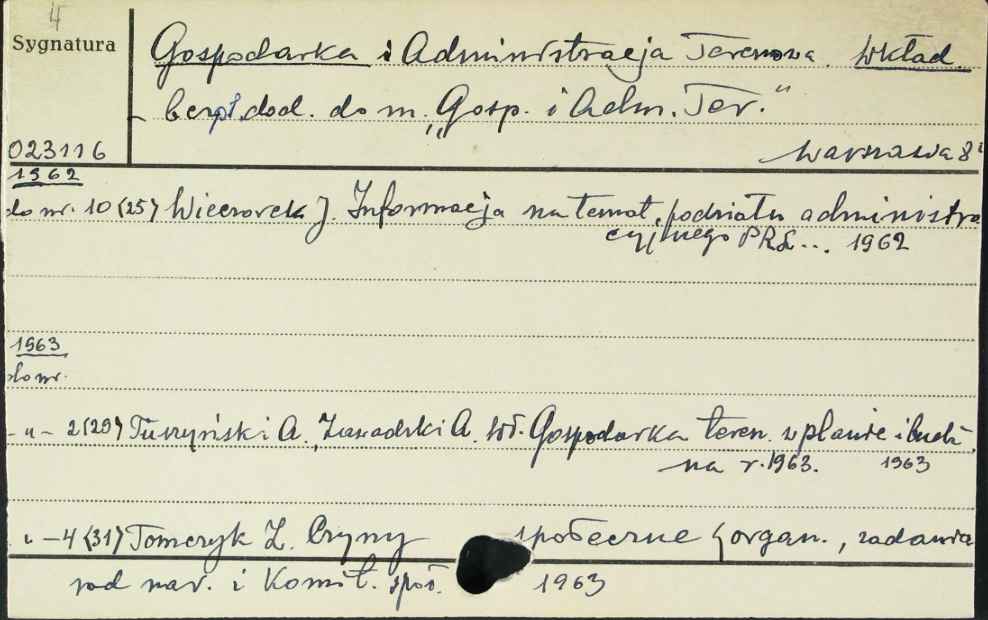 4
Sygnatura
Gospodarka i Administracja Terenowa. Wkład.
bezpł. dod. do m. "Gosp. i Adm. Ter."
023116
Warszawa 8°
1962
do nr. 10 (25) Wieczorek J. Informacja na temat podziału administra
cyjnego PRL... 1962
1963
do nr.
- " - 2(29) Tuszyński A., Zawadzki A. Gospodarka teren. w planie i budż.
na r. 1963. 1963
" - 4 (31) Tomczyk Z. Czyny społeczne organ., zadania
rad nar. i Komit. społ. 1963